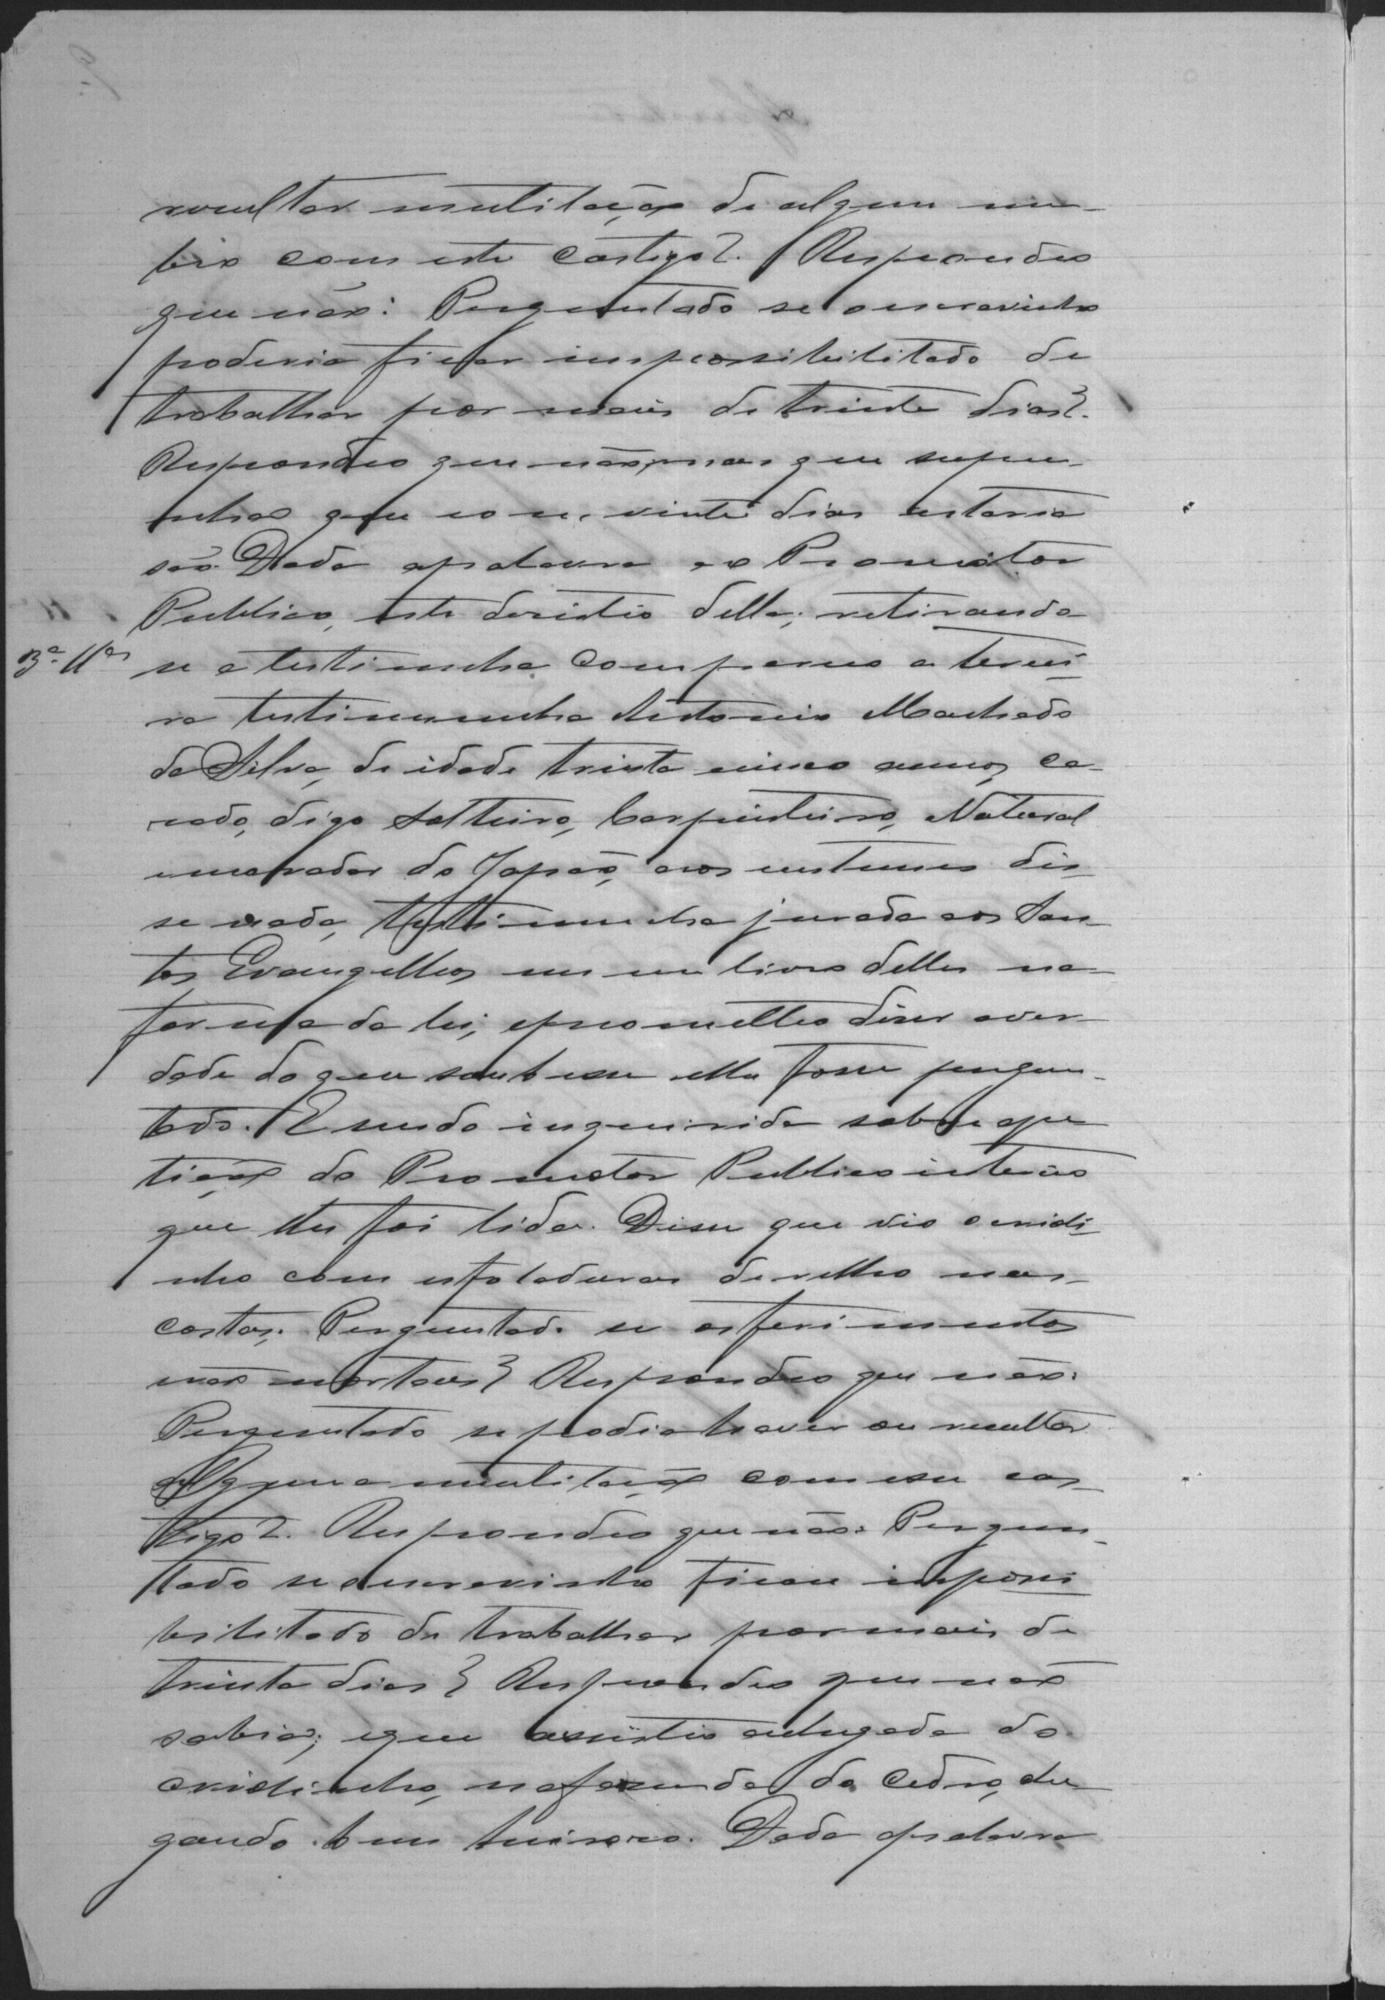 resultar mutilação de algum mem-
bro com este castigo? Respondeo
que não: Perguntado se o escravinho
poderia ficar impossibilitado de
trabalhar por mais de trinta dias?
Respondeo que não, mas que supu-
nha que com vinte dias estaria
são. Dada apalavra ao Promotor
Publico, este desistio della; retirando
3ª Tta se a testimunha compareceo a tercei-
ra testimunha Antonio Machado
da Silva, de idade trinta cinco annos, ca-
sado, digo solteiro, Carpinteiro, Natural
e morador do Japão, aos custumes dis-
se nada, testimunha jurada aos San-
tos Evangelhos em um livro delles na
forma da lei, e prometteo diser aver-
dade do que soubesse e lhe fosse pergun-
tado. E sendo inquirida sobre a pe
tição do Promotor Publico interino
que lhe foi lida. Disse que vio o
nho com esfoladuras de relho nas
costas. Perguntado se os ferimentos
mortaes? Respondeo que não:
Perguntado se podia haver ou resultar
alguma mutilação com esse cas-
tigo? Respondeo que não: Pergun-
tado se o escravinho ficou impossi
bilitado de trabalhar por mais de
trinta dias? Respondeo que não
sabia; e que assistio achegada do
na fazenda do Cedro, che
gando bem Dada apalavra